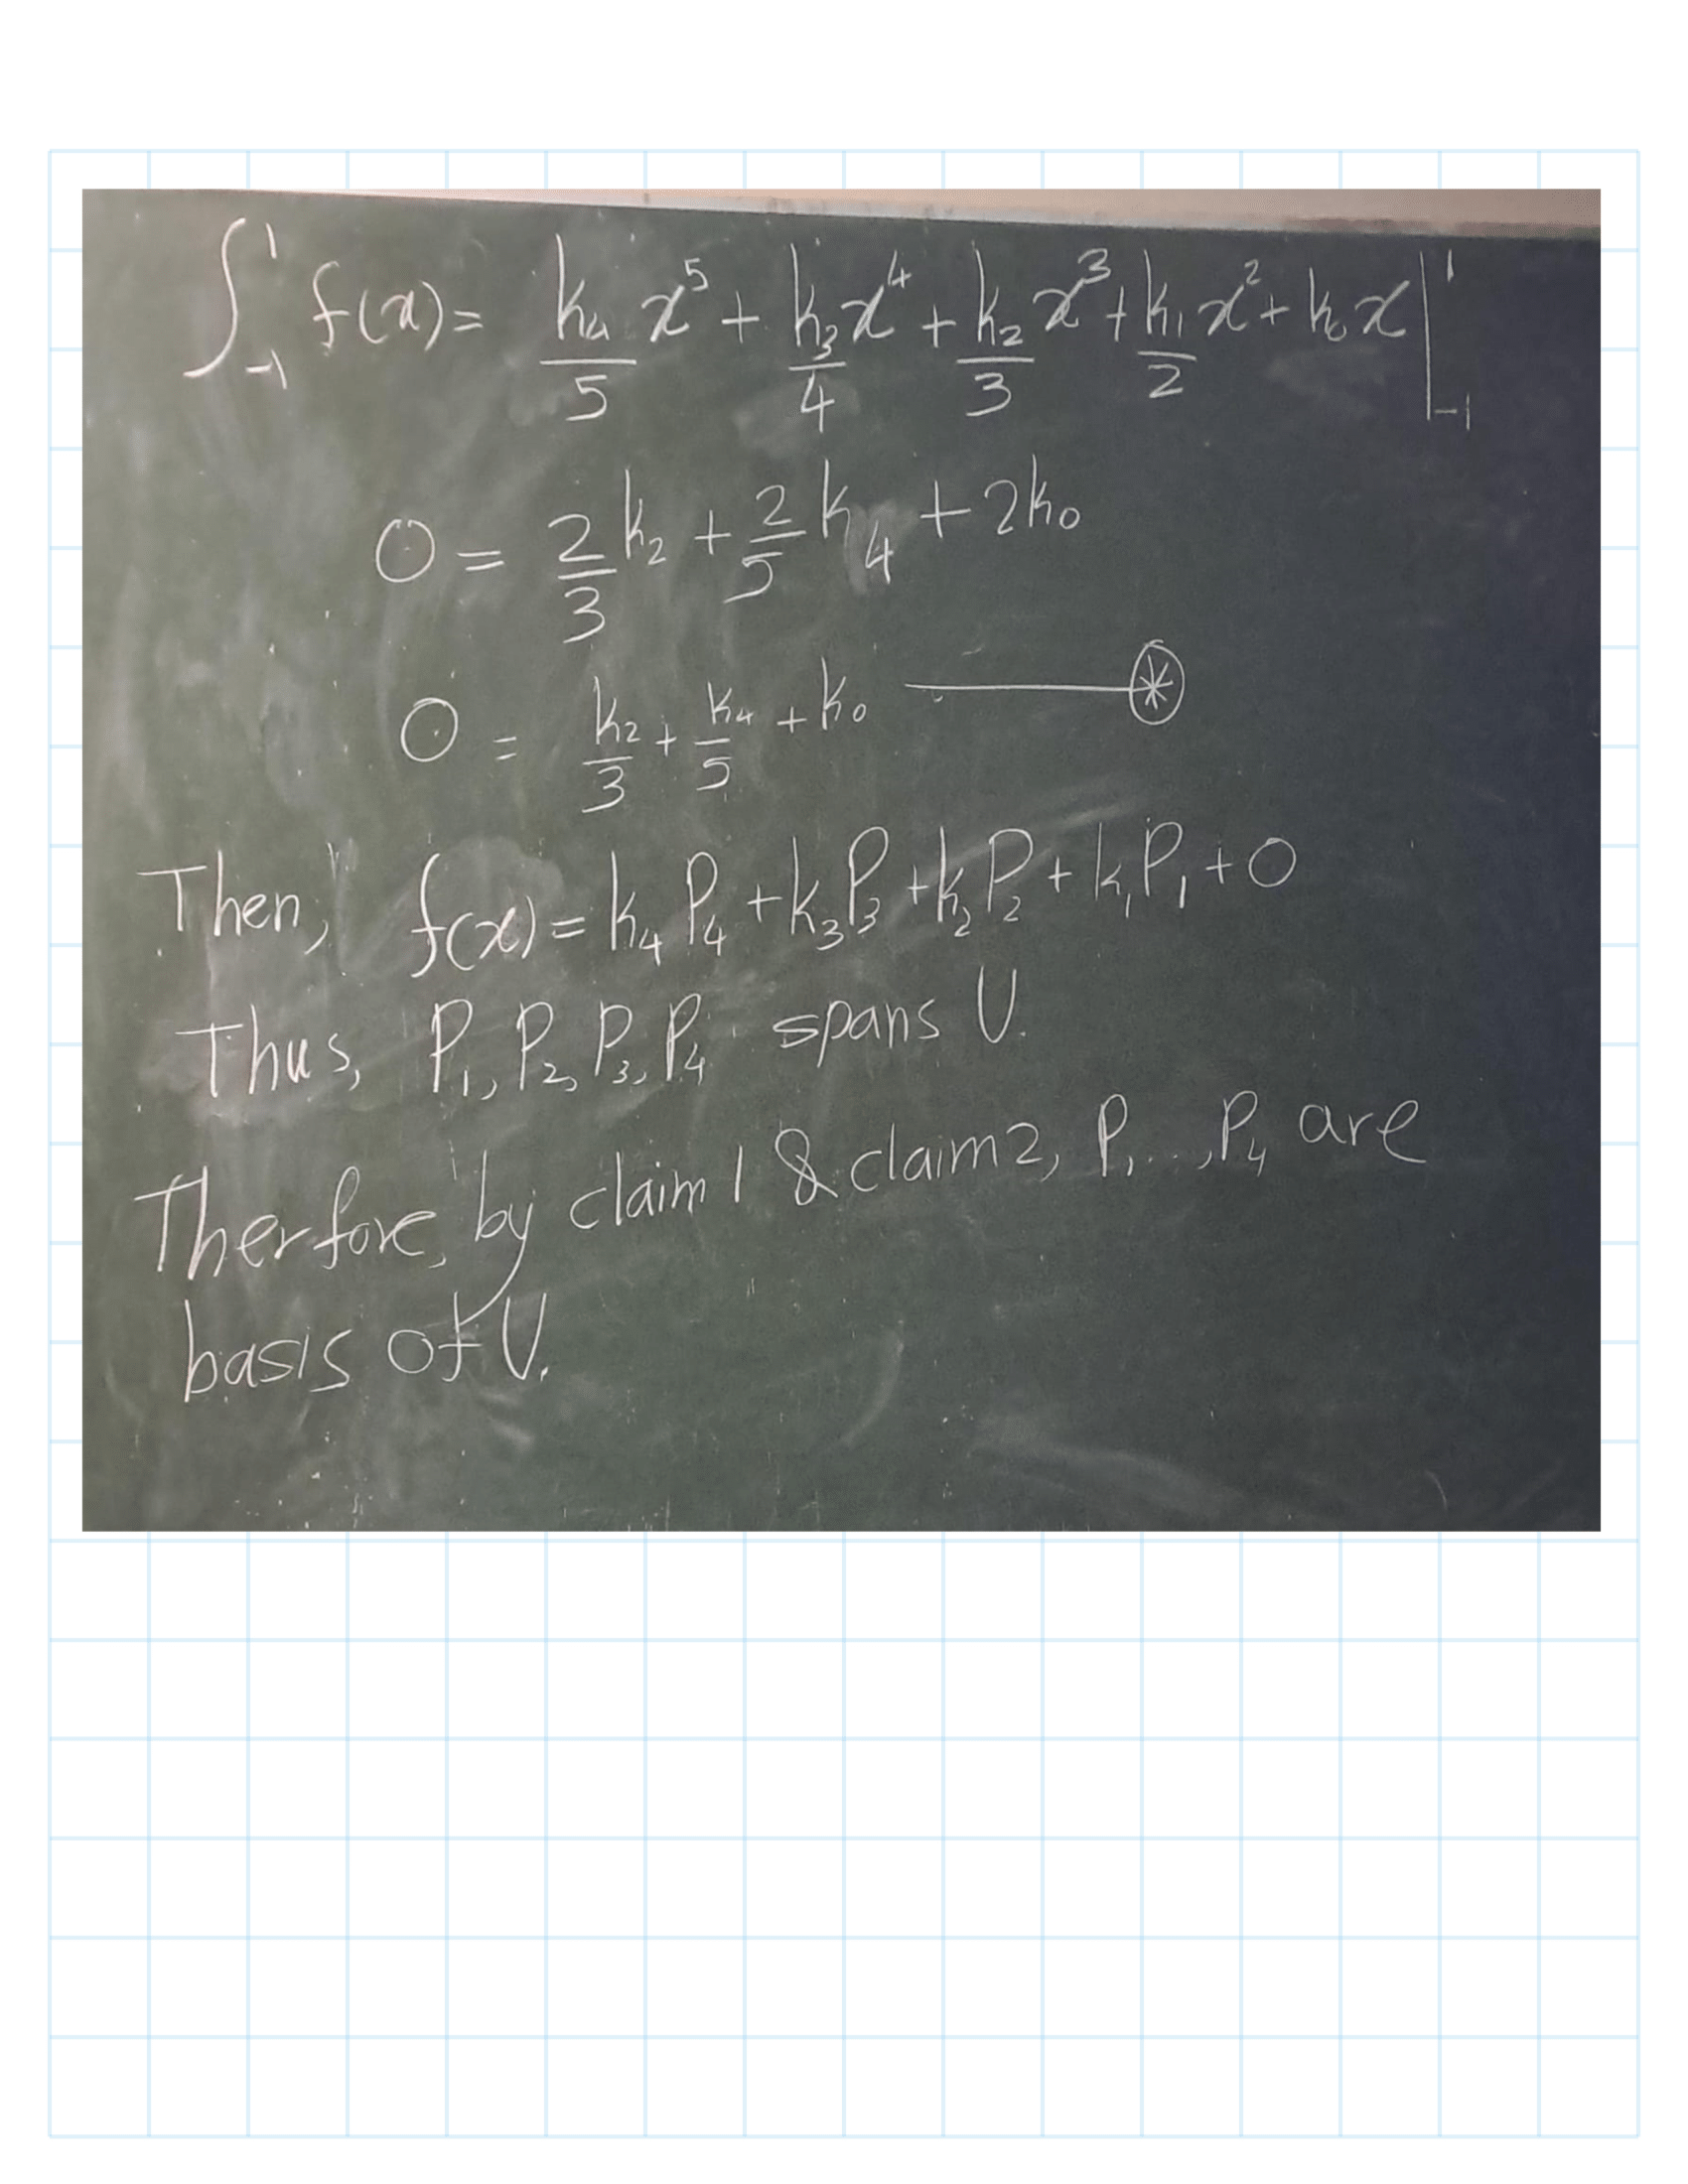 ∫₋₁¹ f(x) = k₄/5 x⁵ + k₃/4 x⁴ + k₂/3 x³ + k₁/2 x² + k₀x |₋₁¹
0 = 2/3 k₂ + 2/5 k₄ + 2k₀
0 = k₂/3 + k₄/5 + k₀ —— ⊛
Then, f(x) = k₄P₄ + k₃P₃ + k₂P₂ + k₁P₁ + 0
Thus, P₁, P₂, P₃, P₄ spans U.
Therfore, by claim 1 & claim 2, P₁...,P₄ are
basis of U.